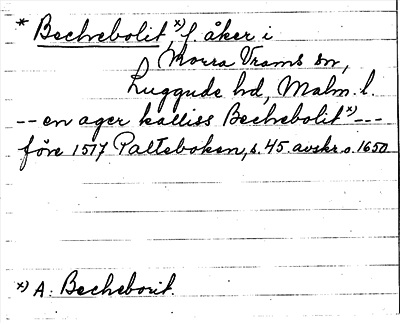 * Bechrebolit, x) f. åker i
Norra Vrams sn,
Luggude hd, Malm. l.
-- en ager kalliss Bechrebolit x) ---
före 1517 Palteboken, s. 45 avskr. o. 1650
x) A: Becheborit.